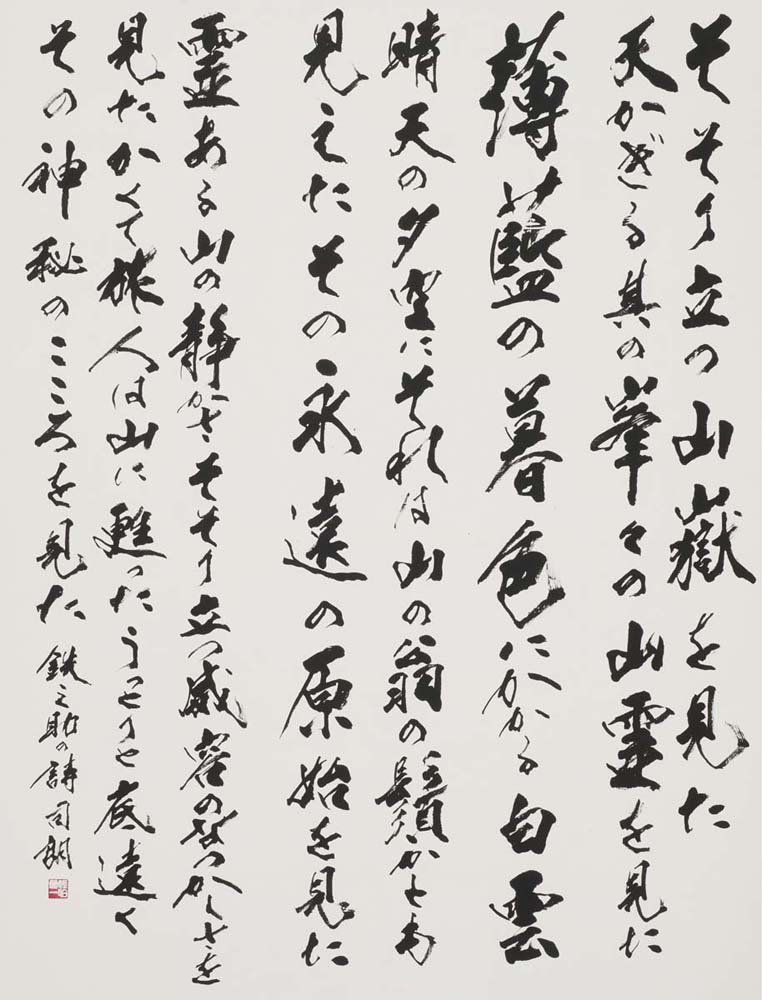 そそり立つ山嶽を見た
天かぎる其の峯々の山靈を見た
薄藍の暮色にかかる白雲
晴天の夕空にそれは山の翁の鬚かとも
見えたその永遠の原始を見た
靈ある山の静かさそそり立つ威容のなつかしさを
見たかくて旅人は山に甦ったうっとりと底遠く
その神秘のこころを見た 銑之助の詩 司朗